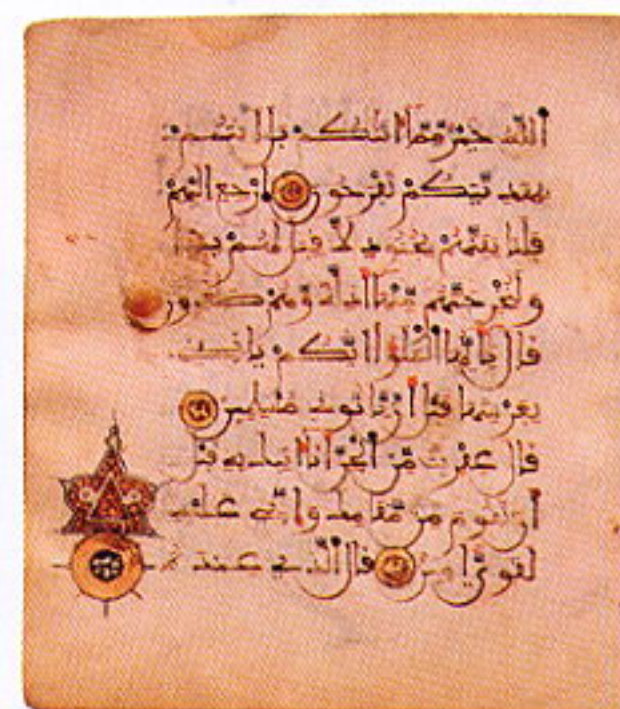 الله خير مما اتيكم بل انتم
بهديتكم تفرحون ارجع اليهم
فلناتينهم بجنود لا قبل لهم بها
ولنخرجنهم منها اذلة وهم صغرون
قال يايها الملؤا ايكم ياتيني
بعرشها قبل ان ياتوني مسلمين
قال عفريت من الجن انا اتيك به قبل
ان تقوم من مقامك واني عليه
لقوي امين قال الذي عنده